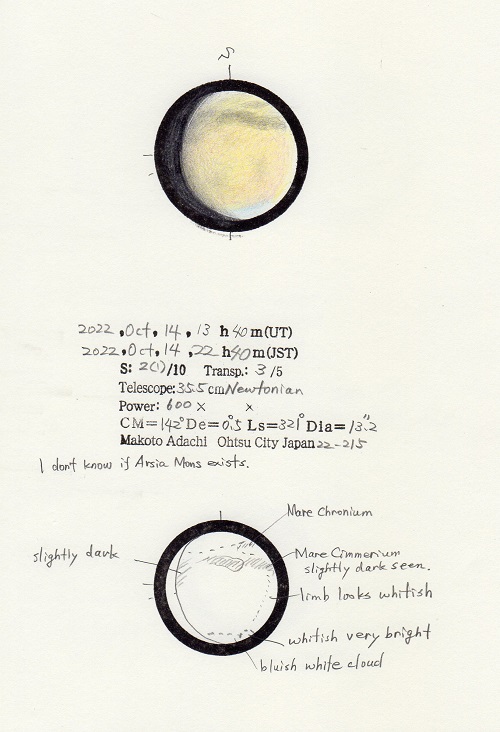 S
2022, Oct, 14, 13 h 40 m (UT)
2022, Oct, 14, 22 h 40 m (JST)
S: 2(1)/10 Transp.: 3/5
Telescope: 35.5 cm Newtonian
Power: 600 × ×
CM=142° De=0.°5 Ls=321° Dia=13."2
Makoto Adachi Ohtsu City Japan 22-215
I don't know if Arsia Mons exists.
Mare Chronium
slightly dark
Mare Cimmerium
slightly dark seen.
limb looks whitish
whitish very bright
bluish white cloud